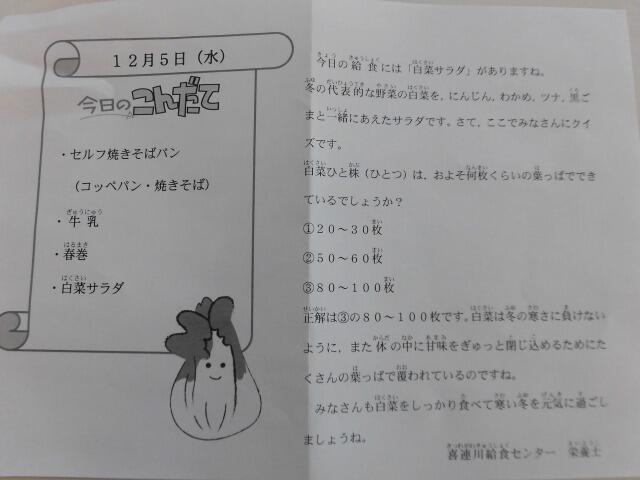 12月5日（水）
今日のこんだて
・セルフ焼きそばパン
（コッペパン・焼きそば）
・牛乳
・春巻
・白菜サラダ
今日の給食には「白菜サラダ」がありますね。
冬の代表的な野菜の白菜を，にんじん，わかめ，ツナ，黒ご
まと一緒にあえたサラダです。さて，ここでみなさんにクイ
ズです。
白菜ひと株（ひとつ）は、およそ何枚くらいの葉っぱででき
ているでしょうか？
①20～30枚
②50～60枚
③80～100枚
正解は③の80～100枚です。白菜は冬の寒さに負けない
ように，また体の中に甘味をぎゅっと閉じ込めるためにた
くさんの葉っぱで覆われているのですね。
みなさんも白菜をしっかり食べて寒い冬を元気に過ごし
ましょうね。
喜連川給食センター　栄養士